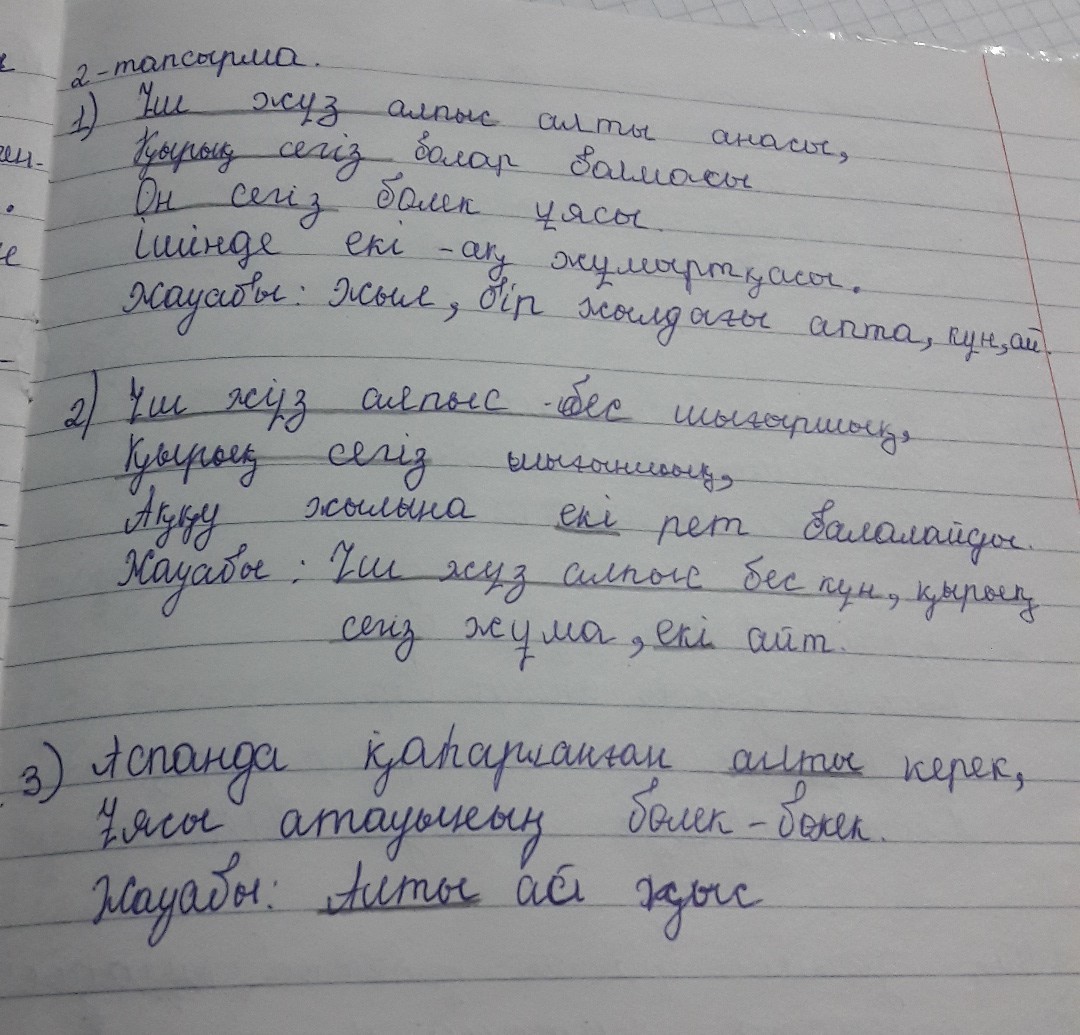 2-тапсырма.
1) Үш жүз алпыс алты анасы,
Қырық сегіз болар баласы
Он сегіз бөлек ұясы.
Ішінде екі-ақ жұмыртқасы.
Жауабы: Жыл, бір жылдағы апта, күн, ай.
2) Үш жүз алпыс бес шығыршық,
Қырық сегіз
Аққу жылына екі рет балалайды.
Жауабы: Үш жүз алпыс бес күн, қырық
сегіз жұма, екі айт.
3) Аспанда қаһарланған алты керек,
Ұясы атауының бөлек-бөлек.
Жауабы: Алты ай қыс